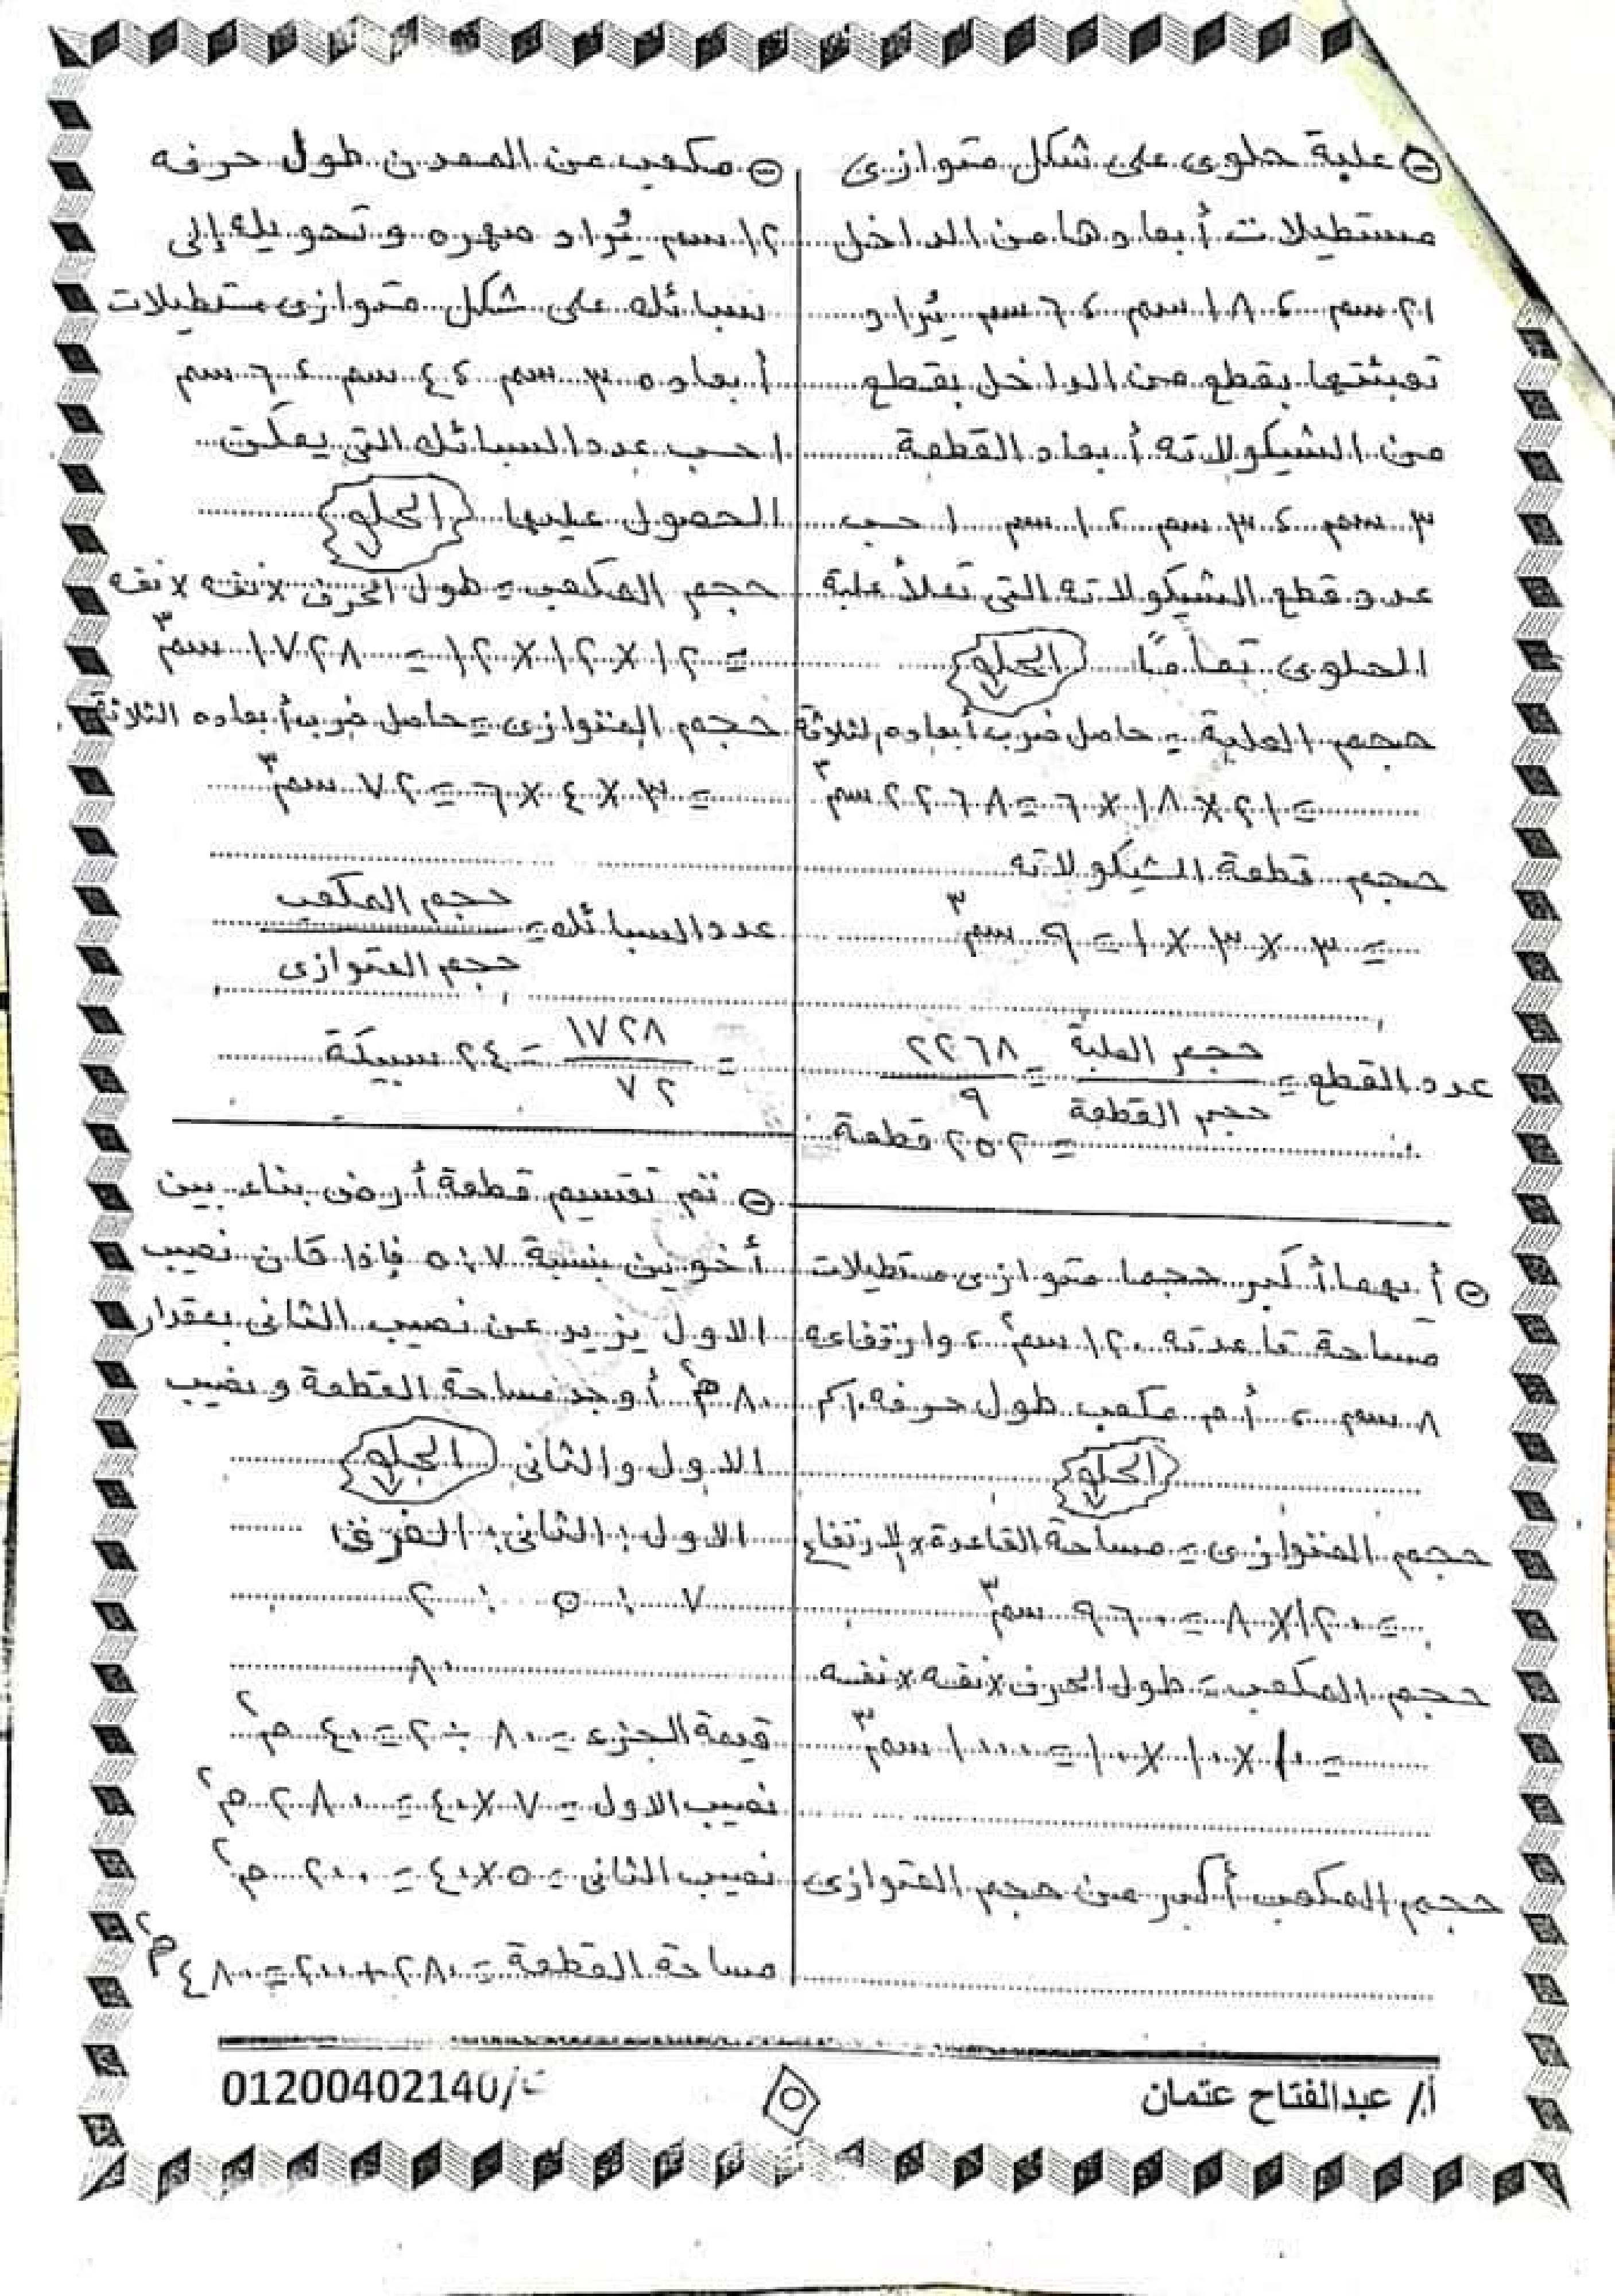 علبة حلوى على شكل متوازى
مستطيلات أبعادها من الداخل
٢١ سم ، ١٨ سم ، ٦ سم يُراد
تعبئتها بقطع من الداخل بقطع
من الشيكولاته أبعاد القطعة
٣ سم ، ٣ سم ، ١ سم احسب
عدد قطع الشيكولاته التى تملأ علبة
الحلوى تمامًا الحلو
حجم العلبة = حاصل ضرب أبعاده الثلاثة
= ٢١ × ١٨ × ٦ = ٢٢٦٨ سم٣
حجم قطعة الشيكولاته
= ٣ × ٣ × ١ = ٩ سم٣
عدد القطع = حجم العلبة / حجم القطعة = ٢٢٦٨ / ٩
= ٢٥٢ قطعة
أيهما أكبر حجما متوازى مستطيلات
مساحة قاعدته ١٢٠ سم٢ ، وارتفاعه
٨ سم ، أم مكعب طول حرفه ١٠
الحلو
حجم المتوازى = مساحة القاعدة × الارتفاع
= ١٢٠ × ٨ = ٩٦٠ سم٣
حجم المكعب = طول الحرف × نفسه × نفسه
= ١٠ × ١٠ × ١٠ = ١٠٠٠ سم٣
حجم المكعب أكبر من حجم المتوازى
مكعب من المعدن طول حرفه
١٢ سم يُراد صهره وتحويله إلى
سبائك على شكل متوازى مستطيلات
أبعاده ٣ سم ، ٤ سم ، ٦ سم
احسب عدد السبائك التى يمكن
الحصول عليها الحلو
حجم المكعب = طول الحرف × نفسه × نفسه
= ١٢ × ١٢ × ١٢ = ١٧٢٨ سم٣
حجم المتوازى = حاصل ضرب أبعاده الثلاثة
= ٣ × ٤ × ٦ = ٧٢ سم٣
عدد السبائك = حجم المكعب / حجم المتوازى
= ١٧٢٨ / ٧٢ = ٢٤ سبيكة
تم تقسيم قطعة أرض بناء بين
أخوين بنسبة ٧ : ٥ فإذا كان نصيب
الاول يزيد عن نصيب الثانى بمقدار
٨٠ م٢ أوجد مساحة القطعة ونصيب
الاول والثانى الحلو
الاول : الثانى : الفرق
٧ : ٥ : ٢
٨٠
قيمة الجزء = ٨٠ ÷ ٢ = ٤٠ م٢
نصيب الاول = ٧ × ٤٠ = ٢٨٠ م٢
نصيب الثانى = ٥ × ٤٠ = ٢٠٠ م٢
مساحة القطعة = ٢٨٠ + ٢٠٠ = ٤٨٠ م٢
أ/ عبدالفتاح عتمان
٥
ت/01200402140